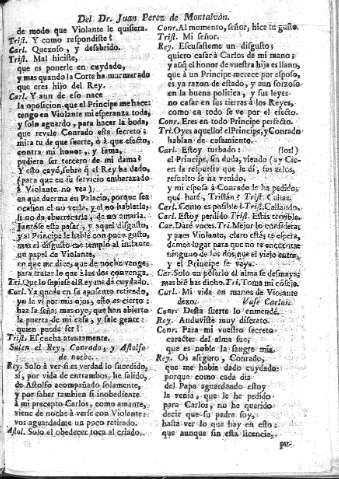 Del Dr. Juan Perez de Montalván.
de modo que Violante le quisiera.
Trist. Y como respondiste?
Carl. Quexoso, y desabrido.
Trist. Mal hiciste,
que es ponerle en cuydado,
y mas quando la Corte ha murmurado
que eres hijo del Rey.
Carl. Y aun de eso nace
la oposicion, que el Principe me hace:
tengo en Violante mi esperanza toda,
y solo aguardo, para hacer la boda,
que revele Conrado este secreto:
mira tu de que suerte, ò à que efecto,
contra mi honor, y fama,
pudiera ser tercero de mi dama?
Y esto cayó, sobre que el Rey ha dado,
(para que en su servicio embarazado
à Violante no vea)
en que duerma en Palacio, porque sea
ocasion el no verla, y el no hablarla,
si no de aborrecerla, de no amarla.
Juntóse esta pasar, y aquel disgusto,
y al Principe le hablé con poco gusto,
mas el disgusto me templó al instante
un papel de Violante,
en que me dice, que de noche venga,
para tratar lo que à los dos convenga.
Tri. Que lo sepiese el Rey me da cuydado.
Carl. Ya queda en su aposento retirado,
yo le vì por mis ojos, esto es cierto:
haz la seña; mas oye, que han abierto
la puerta de mi casa, y sale gente:
quien puede ser?
Trist. Escucha atentamente.
Salen el Rey, Conrado, y Astolfo
de noche.
Rey. Solo à ver si es verdad lo sucedido,
si, por vida de entrambos, he salido,
de Astolfo acompañado solamente,
y por saber tambien si inobediente
à mi precepto Carlos, como amante,
viene de noche à verse con Violante:
vos aguardadme un poco retirado.
Astol. Solo el obedecer toca al criado.
Conr. Al momento, señor, hice tu gusto.
Trist. Mi señor.
Rey. Escusasteme un disgusto;
quiero casar à Carlos de mi mano;
y aunque el honor de vuestra hija es llano,
que à un Principe merece por esposo,
es ya razon de estado, y aun forzoso
en la buena politica, y sus leyes
no casar en sus tierras à los Reyes,
como en todo se ve por el efecto.
Conr. Eres en todo Principe perfecto.
Tri. Oyes aquello? el Principe, y Conrado
hablan de casamiento.
Carl. Estoy turbado:
el Principe, sin duda, viendo (ay Cie-
los!)
la respuesta que le dì, sin zelos,
resuelto se ha venido,
y mi esposa à Conrado le ha pedido;
què harè, Tristán? Trist. Callar.
Carl. Como es posible? Trist. Callando.
Carl. Estoy perdido. Trist. Estás terrible.
Car. Daré voces. Tri. Mejor lo considera;
y pues Violante, claro està, te espera,
demos lugar para que no te encuentre
ninguno de los dos, que el viejo entre,
y el Principe se vaya.
Car. Solo en pensarlo el alma se desmaya;
mas bien has dicho. Tri. Toma mi consejo.
Carl. Mi vida en manos de Violante
dexo. Vase Carlos.
Conr. Desta suerte lo enmendé.
Rey. Anduviste muy discreto.
Conr. Para mi vuestro secreto
caracter del alma fue;
que es noble la sangre mia.
Rey. Os aseguro, Conrado,
que me habie dado cuydado:
porque como cada dia
del Papa aguardando estoy
la venia, que le he pedido
para Carlos, no he querido
decir que su padre soy,
hasta ver lo que hay en esto:
que aunque sin esta licencia,
pu-